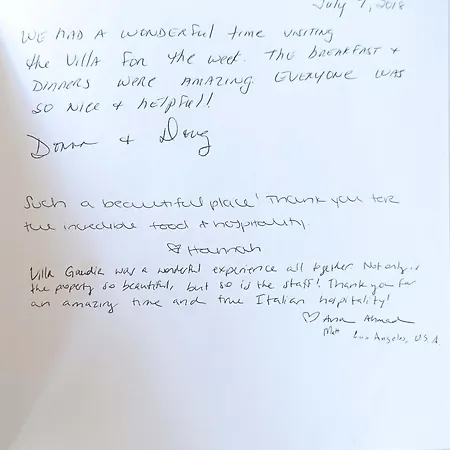 July 7, 2018
WE HAD A WONDERFUL time VISITING
the VILLA FOR the week. THE BREAKFAST +
DINNERS WERE AMAZING. EVERYONE WAS
SO NICE + HELPFUL!
Donna + Doug
Such a beautiful place! Thank you for
the incredible food + hospitality.
Hannah
Villa Gaudia was a wonderful experience all together. Not only is
the property so beautiful, but so is the staff! Thank you for
an amazing time and true Italian hospitality!
♡ Ahmad
Matt Los Angeles, U.S.A.